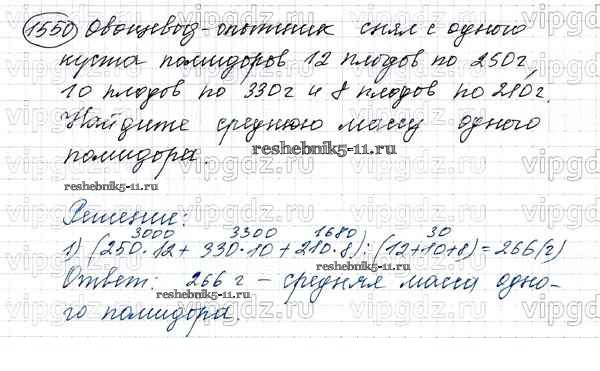 1550 Овощевод-опытник снял с одного
куста помидоров 12 плодов по 250г,
10 плодов по 330г и 8 плодов по 210г.
Найдите среднюю массу одного
помидора.
reshebnik5-11.ru
reshebnik5-11.ru
Решение:
3000 3300 1680 30
1) (250·12 + 330·10 + 210·8) : (12+10+8) = 266 (г)
reshebnik5-11.ru
Ответ: 266 г – средняя масса одно-
reshebnik5-11.ru
го помидора.
vipgdz.ru